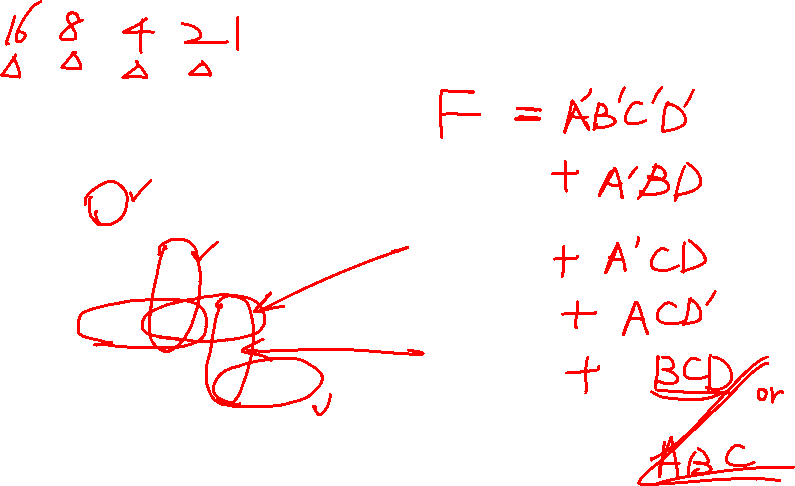 16 8 4 2 1
F = A'B'C'D'
+ A'BD
+ A'CD
+ ACD'
+ BCD or
ABC